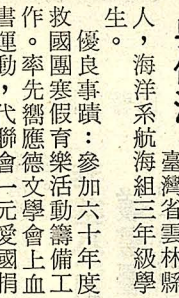 臺灣省雲林縣
人，海洋系航海組三年級學
生。
優良事蹟：參加六十年度
救國團寒假育樂活動籌備工
作。率先嚮應德文學會上血
書運動，代聯會一元愛國捐